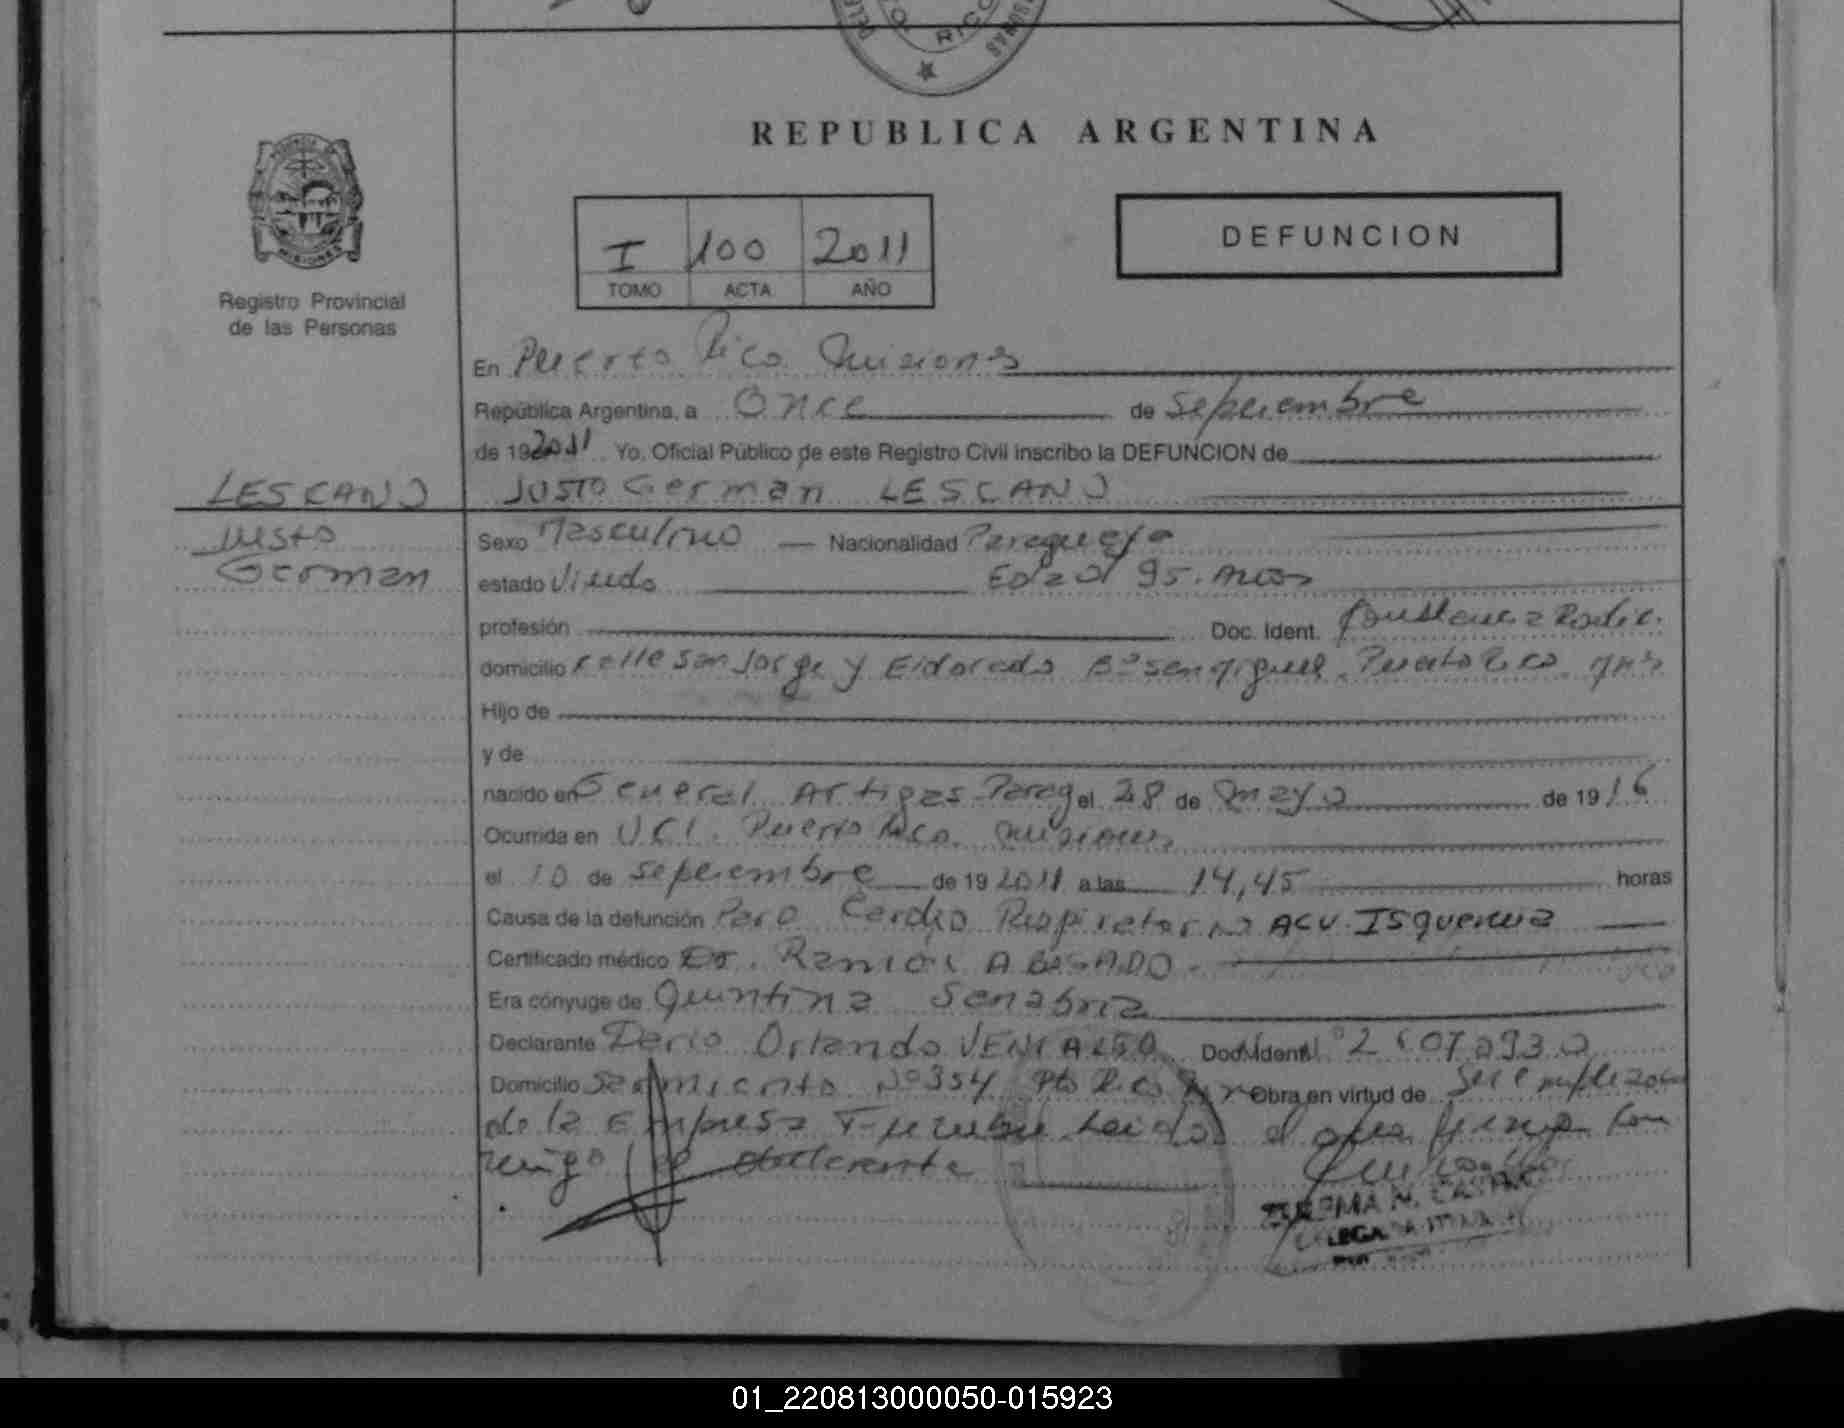 REPUBLICA ARGENTINA
MISIONES
Registro Provincial
de las Personas
I 100 2011
TOMO ACTA AÑO
DEFUNCION
En Puerto Rico Misiones
República Argentina, a Once de Sepeiembre
de 19 2011 Yo, Oficial Público de este Registro Civil inscribo la DEFUNCION de
LESCANO Justo German LESCANO
Justo
German
Sexo Masculino Nacionalidad Paraguaya
estado Viudo Edad 95. Años
profesión Doc. Ident.
domicilio calle San Jorge y Eldorado Bº San Miguel. Puerto Rico. Mns
Hijo de
y de
nacido en General Artigas Parag el 28 de Mayo de 19 16
Ocurrida en UCI. Puerto Rico. Misiones
el 10 de Sepeiembre de 19 2011 a las 14,45 horas
Causa de la defunción Paro Cardio Respiratorio ACV. Isquemia
Certificado médico Dr. Ramón ABOGADO
Era cónyuge de Quintina Senabria
Declarante Dario Orlando Doc. Ident.
Domicilio Sarmiento Nº 354 Pto Rico Obra en virtud de Ser empleado
de la Empresa Funebre Leida el acta firma con
migo el declarante
01_220813000050-015923